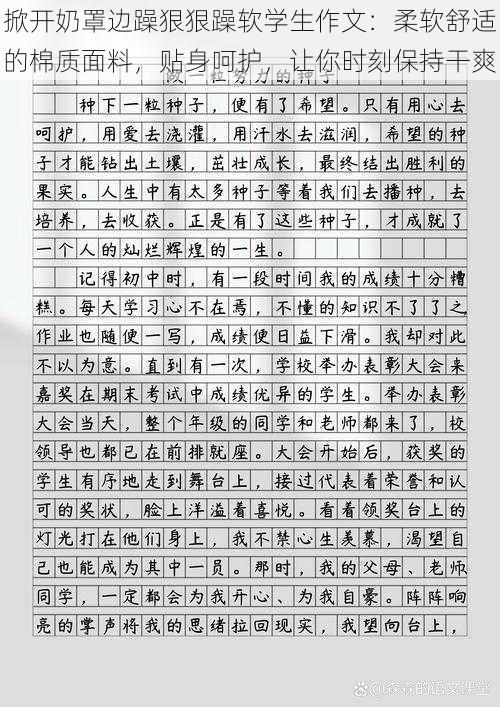 掀开奶罩边躁狠狠躁软学生作文：柔软舒适
的棉质面料，贴身呵护，让你时刻保持干爽
做一粒努力的种子
种下一粒种子，便有了希望。只有用心去
呵护，用爱去浇灌，用汗水去滋润，希望的种
子才能钻出土壤，茁壮成长，最终结出胜利的
果实。人生中有太多种子等着我们去播种，去
培养，去收获。正是有了这些种子，才成就了
一个人的灿烂辉煌的一生。
记得初中时，有一段时间我的成绩十分糟
糕。每天学习心不在焉，不懂的知识不了了之
作业也随便一写，成绩便日益下滑。我却对此
不以为意。直到有一次，学校举办表彰大会来
嘉奖在期末考试中成绩优异的学生。举办表彰
大会当天，整个年级的同学和老师都来了，校
领导也都已在前排就座。大会开始后，获奖的
学生有序地走到舞台上，接过代表着荣誉和认
可的奖状，脸上洋溢着喜悦。看着领奖台上的
灯光打在他们身上，我不禁心生羡慕，渴望自
己也能成为其中一员。那时，我的父母、老师
同学，一定都会为我开心、为我自豪。阵阵响
亮的掌声将我的思绪拉回现实，我望向台上，